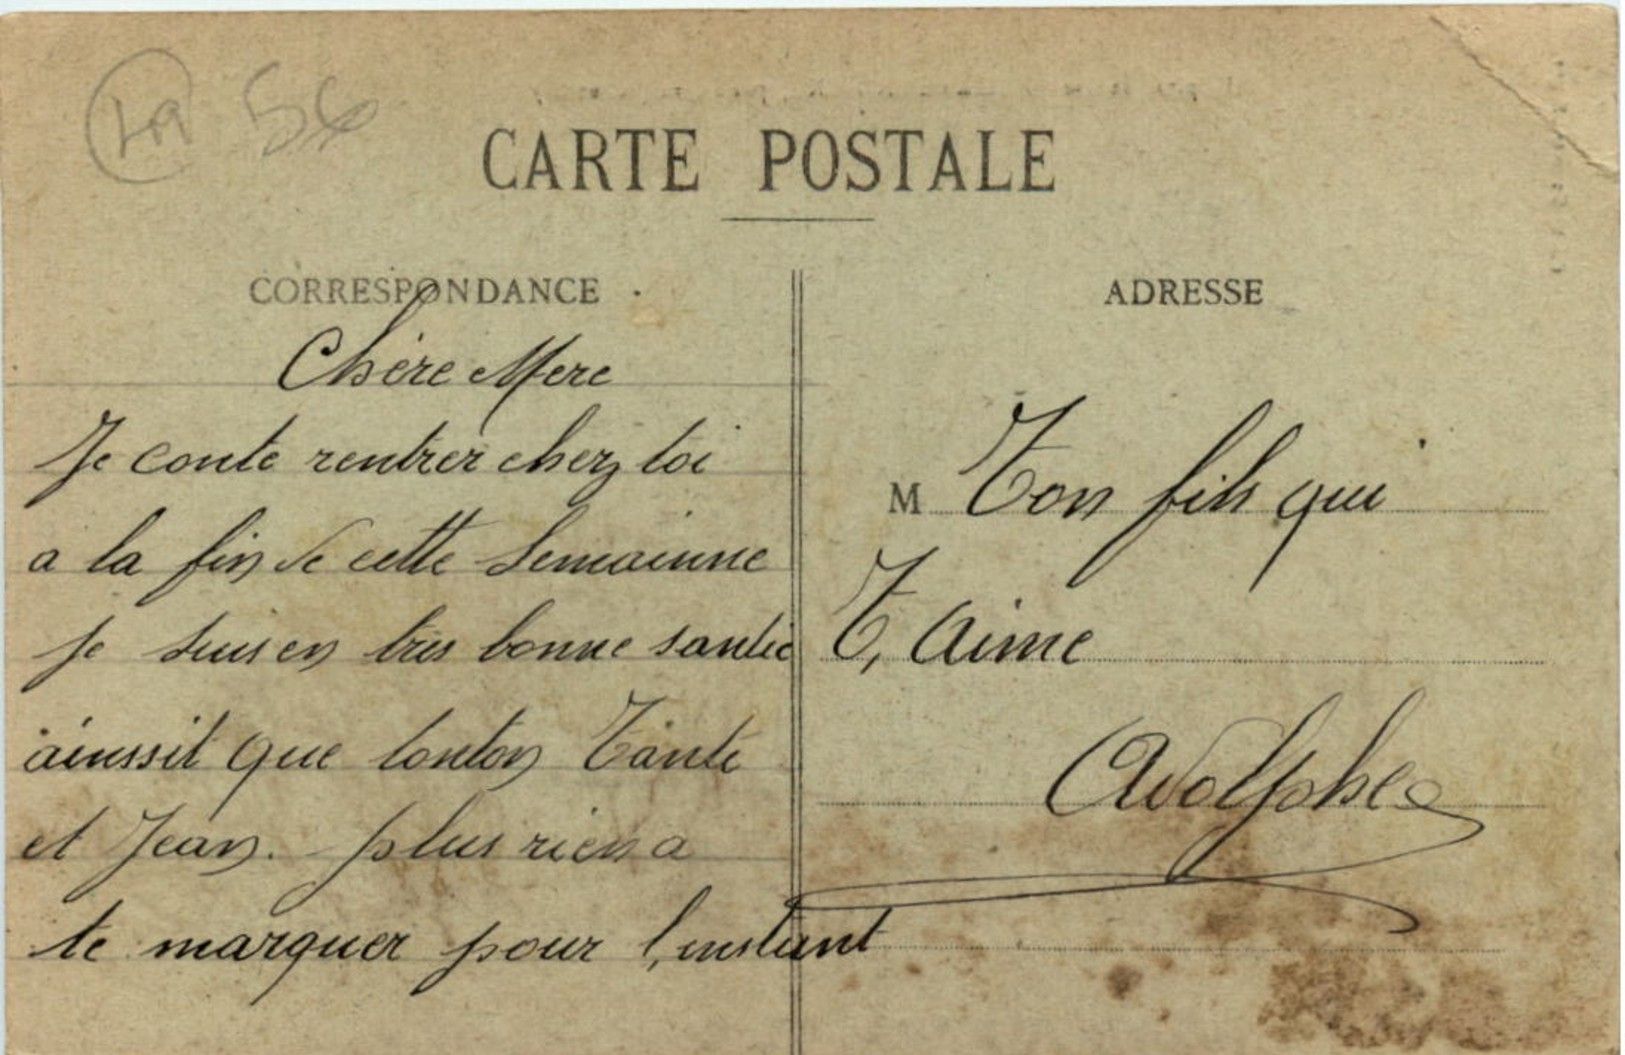 56
CARTE POSTALE
CORRESPONDANCE
Chère Mere
Je conte rentrer chez toi
a la fin de cette Semainne
je suis en tres bonne santée
ainssit que tonton Tante
et Jean. plus rien a
te marquer pour l,instant
ADRESSE
M Ton fils qui
T, Aime
Adolphe